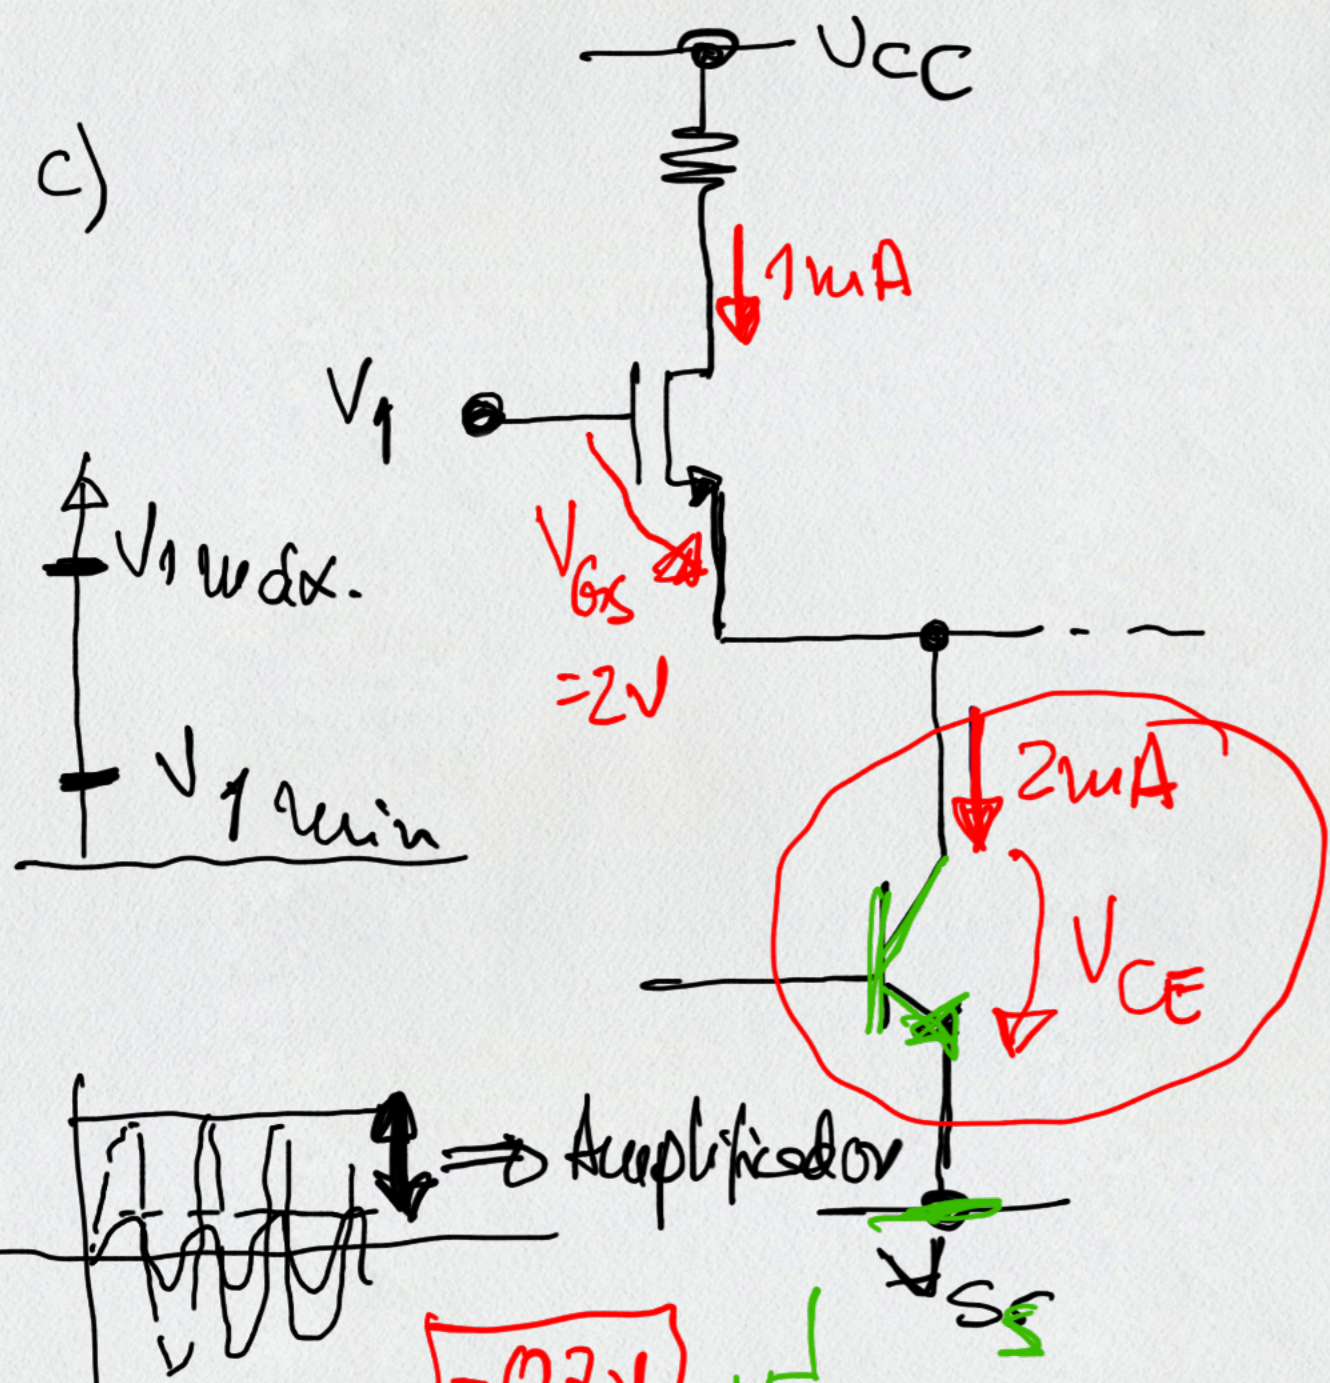 VCC
c)
1mA
V1
V1 máx.
VGS
=2V
V1 min
2mA
VCE
⇒ Amplificador
VSS